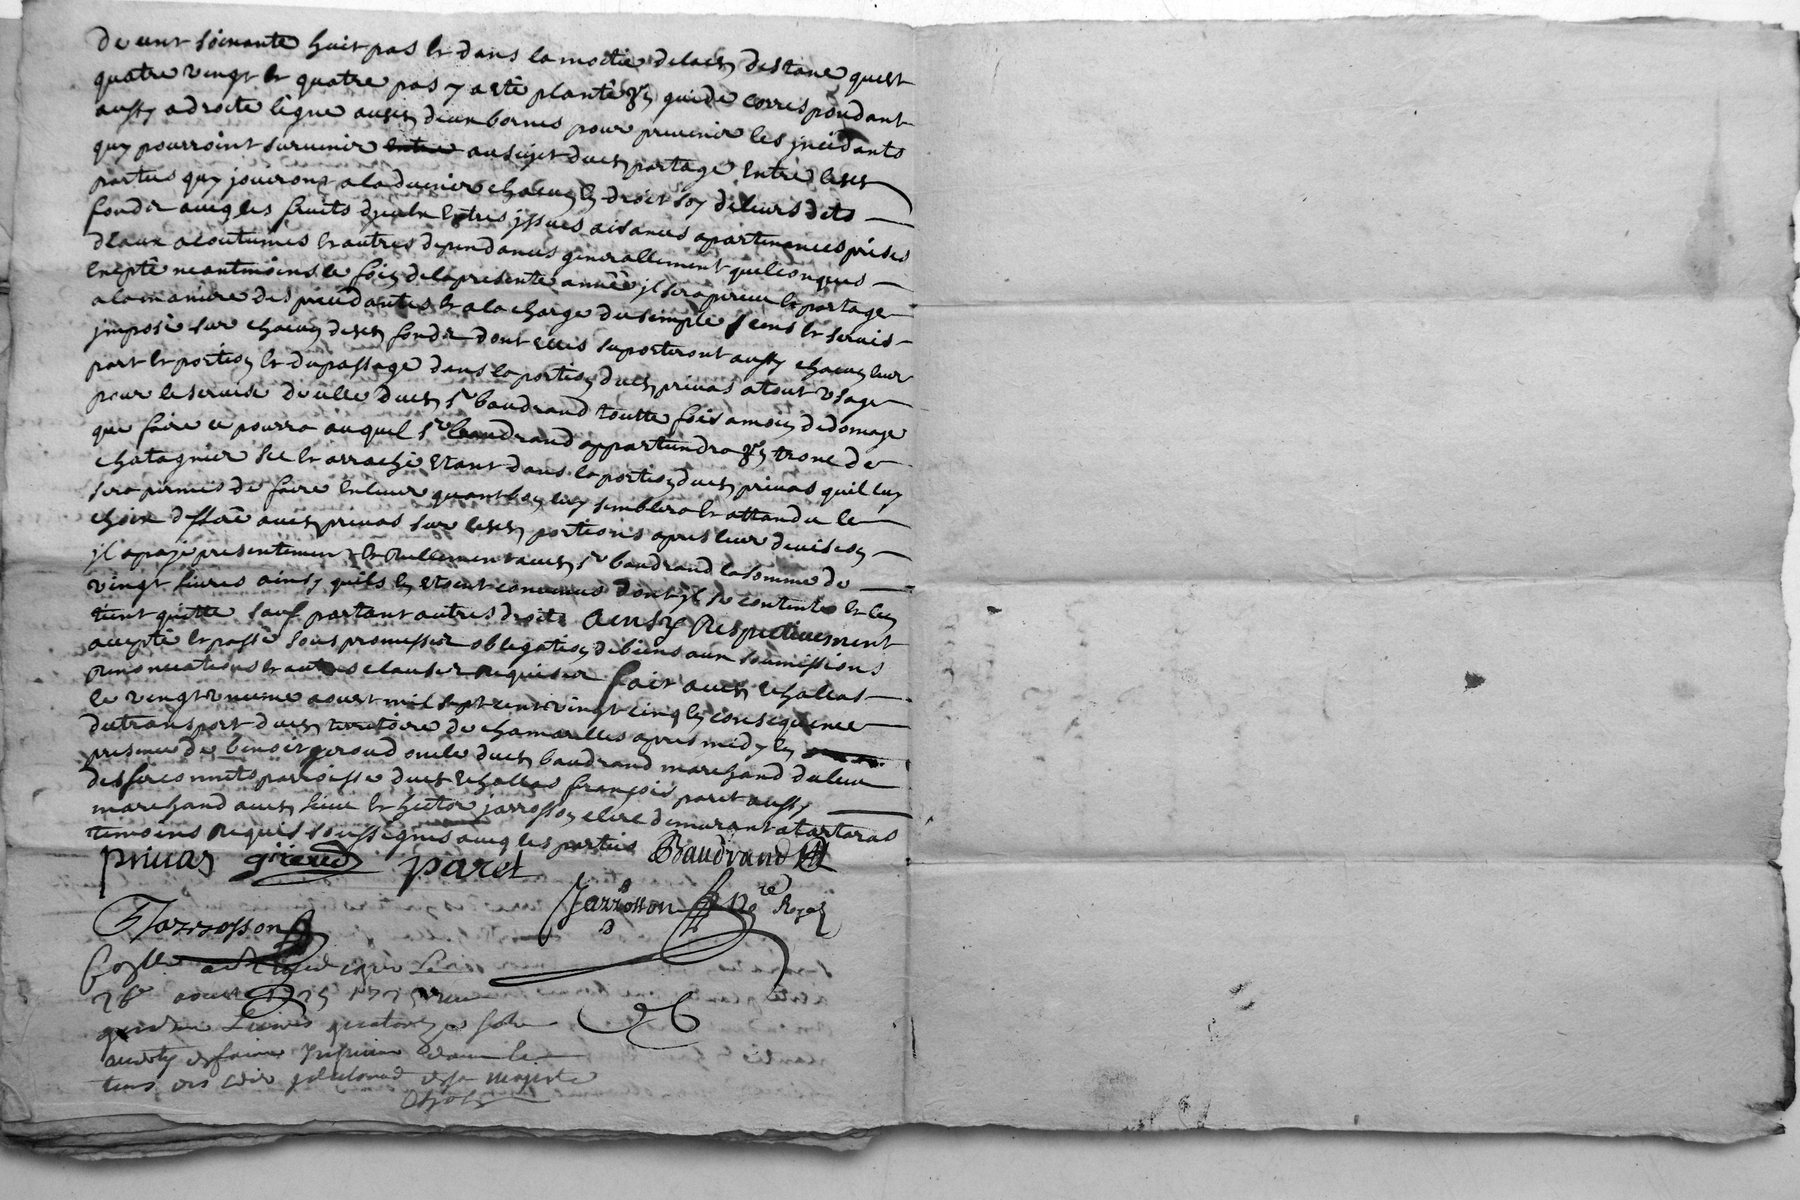 de cent soixante huit pas et dans la moitie delad distance quest
quatre vingt et quatre pas y a esté planté un guide correspondant
aussy a droite ligne auxd deux bornes pour prevenir les jncidants
quy pourroint survenir entre au sujet dud partage entre lesd
parties quy jouiront a ladvenir chacun en droit soy de leurs dits
fonds avecq les fruits d'iceux entrés jssues aisances apartenances prises
deaux acoutumés et autres dependances generallement quelconques
excepté neantmoins le foin de la presente année jl sera perceu et partagé
a la maniere des precedantes et a la charge du simple sens et servis
jmposé sur chacun desd fonds dont elles suporteront aussy chacun leur
part et portion et du passage dans la portion dud privas a tout usage
pour le service de celle dud sr baudrand toutte fois a moin de domage
que faire ce pourra auquel sr baudrand appartiendra un tronc de
chatagnier sec et arraché etant dans la portion dud privas quil luy
sera permis de faire enlever quant bon luy semblera et attandu le
choix defferé aud privas sur lesd portions apres leur division
jl a payé presentement et reellement aud sr baudrand la somme de
vingt livres ainsy quils en etoient convenus dont jl se contente et len
tient quitte sauf partant autres droits Ainsy Respectivement
accepté et passé sous promesses obligation de biens aux soumissions
renonciations et autres clauses requises fait aud Echallas
le vingt uneme aoust mil sept cent vingt cinq en consequence
du transport dud territoire de chamarelles apres midy en
presence de benoit giroud oncle dud baudrand marchand du lieu
des paroisse dud Echallas françois paret aussy
marchand aud lieu et hector jarrosson clerc demurant a tartaras
temoins requis soussignés avecq les parties
privas giroud paret Baudrand
Jarrosson Jarrosson nore Royal
aoust 1725
livres